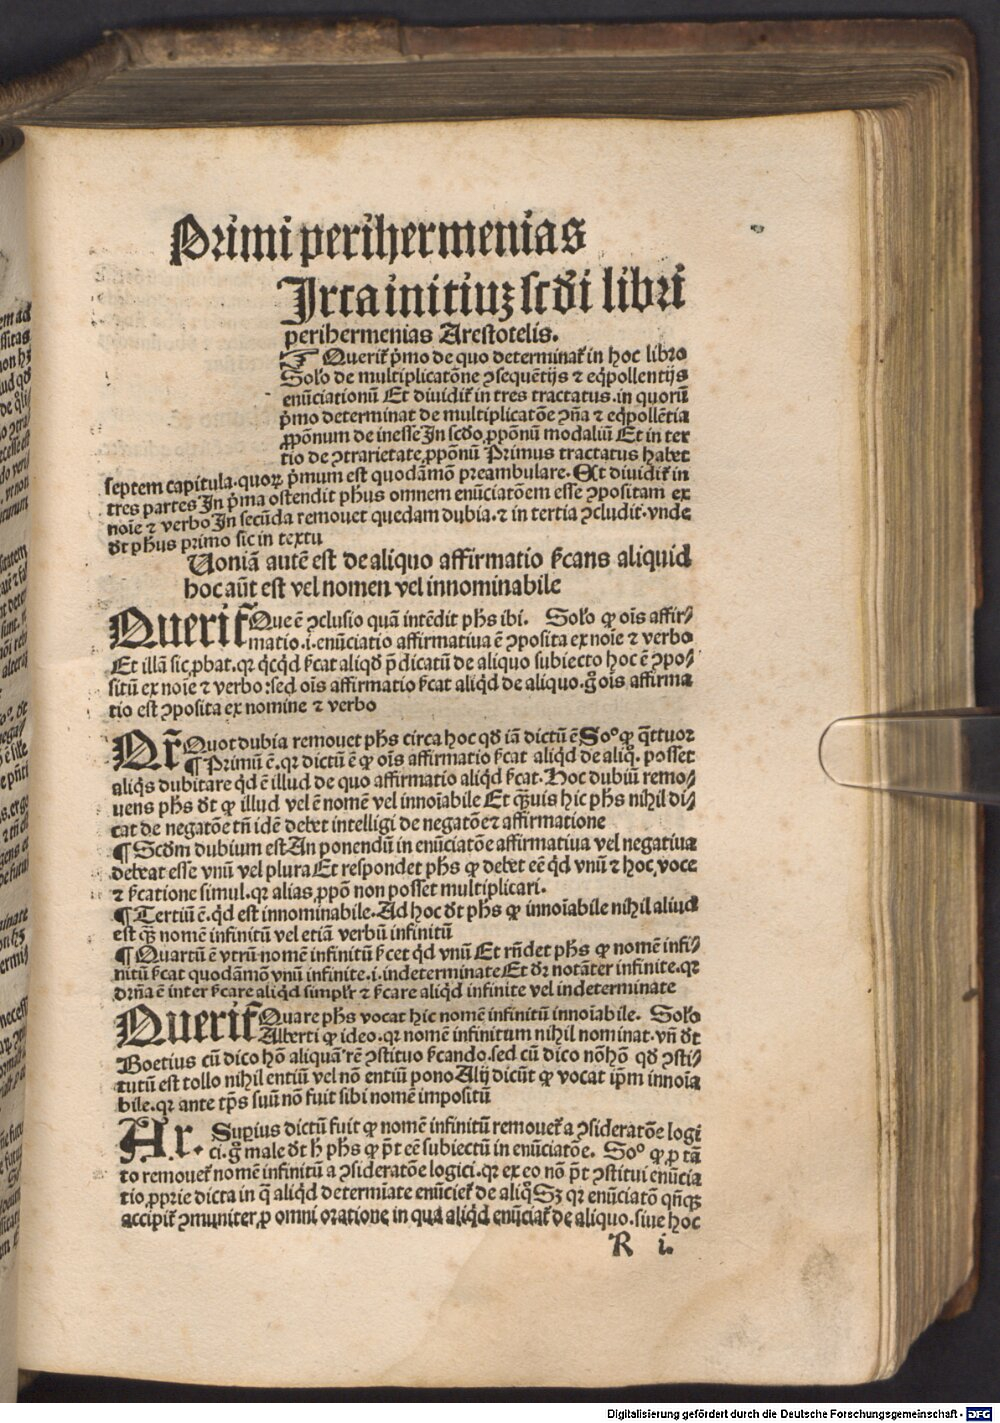 Primi perihermenias
Irca initiuʒ scd̄i libri
perihermenias Arestotelis.
☞ Querit᷑ p̄mo de quo determinat᷑ in hoc libro
Solo de multiplicatōne ꝯsequētijs ⁊ eq̄pollentijs
enūciationū Et diuidit᷑ in tres tractatus. in quorū
p̄mo determinat de multiplicatōe ꝯn̄a ⁊ eq̄pollētia
ꝓpōnum de inesse In scdo, ꝓpōnū modaliū Et in ter
tio de ꝯtrarietate, ꝓpōnū Primus tractatus habet
septem capitula. quoꝝ p̄mum est quodāmō preambulare. Et diuidit᷑ in
tres partes In p̄ma ostendit ph̄us omnem enūciatōem esse ꝯpositam ex
noīe ⁊ verbo In secūda remouet quedam dubia. ⁊ in tertia ꝯcludit. vnde
d̄t ph̄us primo sic in textu
Uoniā autē est de aliquo affirmatio s̄cans aliquid
hoc aūt est vel nomen vel innominabile
Querit᷑ Que ē ꝯclusio quā intēdit ph̄s ibi. Solo ꝙ oīs affir⸗
matio .i. enūciatio affirmatiua ē ꝯposita ex noīe ⁊ verbo
Et illā sic, ꝓbat. qꝛ q̇cq̇d s̄cat aliqd̄ p̄dicatū de aliquo subiecto hoc ē ꝯpo⸗
sitū ex noīe ⁊ verbo: sed oīs affirmatio s̄cat aliq̇d de aliquo. g̊ oīs affirma
tio est ꝯposita ex nomine ⁊ verbo
Qr̄ Quot dubia remouet ph̄s circa hoc qd̄ iā dictū ē Soº ꝙ q̄ttuor
¶ Primū ē. qꝛ dictū ē ꝙ oīs affirmatio s̄cat aliq̇d de aliq̊. posset
aliq̇s dubitare q̇d ē illud de quo affirmatio aliq̇d s̄cat. Hoc dubiū remo⸗
uens ph̄s d̄t ꝙ illud vel ē nomē vel innoīabile Et q̄uis hic ph̄s nihil di⸗
cat de negatōe tn̄ idē debet intelligi de negatōe ⁊ affirmatione
¶ Scd̄m dubium est An ponendū in enūciatōe affirmatiua vel negatiua
debeat esse vnū vel plura Et respondet ph̄s ꝙ debet eē q̇d vnū ⁊ hoc, voce
⁊ s̄catione simul. qꝛ alias, ꝓpō non posset multiplicari.
¶ Tertiū ē. q̇d est innominabile. Ad hoc d̄t ph̄s ꝙ innoīabile nihil aliud
est q̄ nomē infinitū vel etiā verbū infinitū
¶ Quartū ē vtrū nomē infinitū s̄cet q̇d vnū Et rn̄det ph̄s ꝙ nomē infi⸗
nitū s̄cat quodāmō vnū infinite .i. indeterminate Et dꝛ notāter infinite. qꝛ
drn̄a ē inter s̄care aliq̇d simplr̄ ⁊ s̄care aliq̇d infinite vel indeterminate
Querit᷑ Quare ph̄s vocat hic nomē infinitū innoīabile. Solo
Alberti ꝙ ideo. qꝛ nomē infinitum nihil nominat. vn̄ d̄t
Boetius cū dico hō aliquā rē ꝯstituo s̄cando. sed cū dico nōhō qd̄ ꝯsti⸗
tutū est tollo nihil entiū vel nō entiū pono Alij dicūt ꝙ vocat ip̄m innoīa
bile. qꝛ ante tp̄s suū nō fuit sibi nomē impositū
Ar. Superius dictū fuit ꝙ nomē infinitū remouet᷑ a ꝯsideratōe logi
ci. g̊ male d̄t h̄ ph̄s ꝙ p̄t eē subiectū in enūciatōe. Soº ꝙ, ꝓ tā
to remouet᷑ nomē infinitū a ꝯsideratōe logici. qꝛ ex eo nō p̄t ꝯstitui enūcia
tio, ꝓprie dicta in q̄ aliq̇d determīate enūciet᷑ de aliq̊ Sꝫ qꝛ enūciatō qn̄qꝫ
accipit᷑ ꝯmuniter, ꝓ omni oratione in qua aliq̇d enūciat᷑ de aliquo. siue hoc
R i.
Digitalisierung gefördert durch die Deutsche Forschungsgemeinschaft - DFG